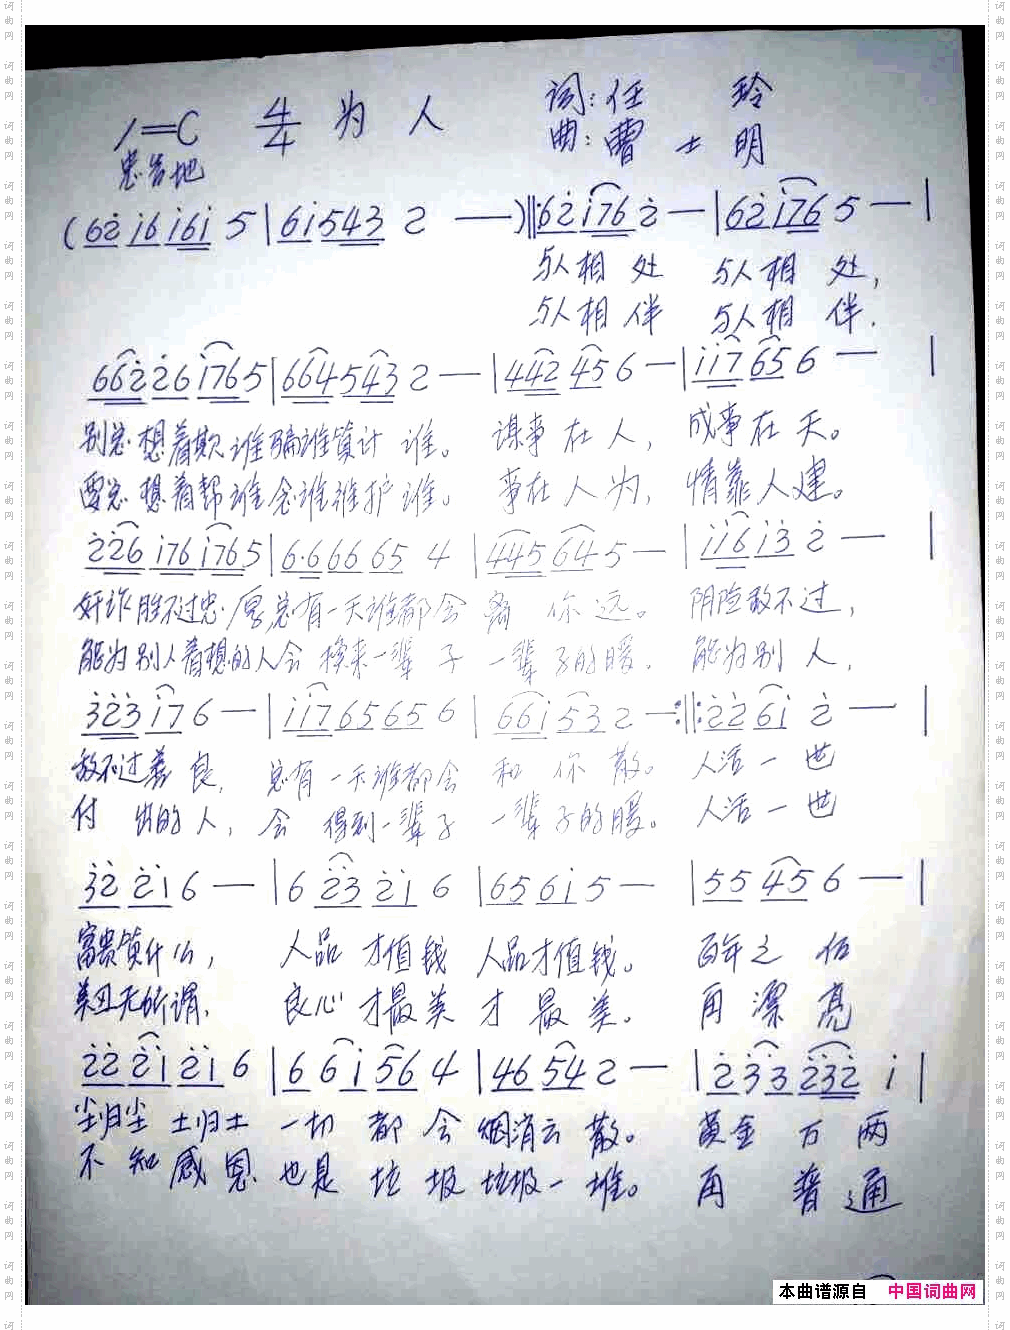 1=C 4/4 为人 词:任 玲
曲:曹士明
忠告地
(62 16 161 5 | 61543 2 —)‖:62176 2 — | 62176 5 — |
与人相处 与人相处,
与人相伴 与人相伴.
662261765 | 6645432 — | 442 45 6 — | 117 65 6 — |
别总想着欺谁骗谁算计谁。 谋事在人, 成事在天。
要总想着帮谁念谁维护谁。 事在人为, 情靠人建。
226 176 1765 | 6·666 65 4 | 445 64 5 — | 116 13 2 — |
奸诈胜不过忠厚,总有一天谁都会离你远。 阴险敌不过,
能为别人着想的人会换来一辈子一辈子的暖. 能为别人,
323 17 6 — | 117 65 65 6 | 661 53 2 —:‖:22 61 2 — |
敌不过善良, 总有一天谁都会和你散。 人活一世
付出的人, 会得到一辈子一辈子的暖。 人活一世
32 21 6 — | 6 23 21 6 | 65 61 5 — | 55 45 6 — |
富贵算什么, 人品才值钱人品才值钱。 百年之后
美丑无所谓, 良心才最美才最美。 再漂亮
22 21 21 6 | 6 61 56 4 | 46 54 2 — | 233 232 1 |
尘归尘土归土一切都会烟消云散。 黄金万两
不知感恩也是垃圾垃圾一堆。 再普通
本曲谱源自 中国词曲网